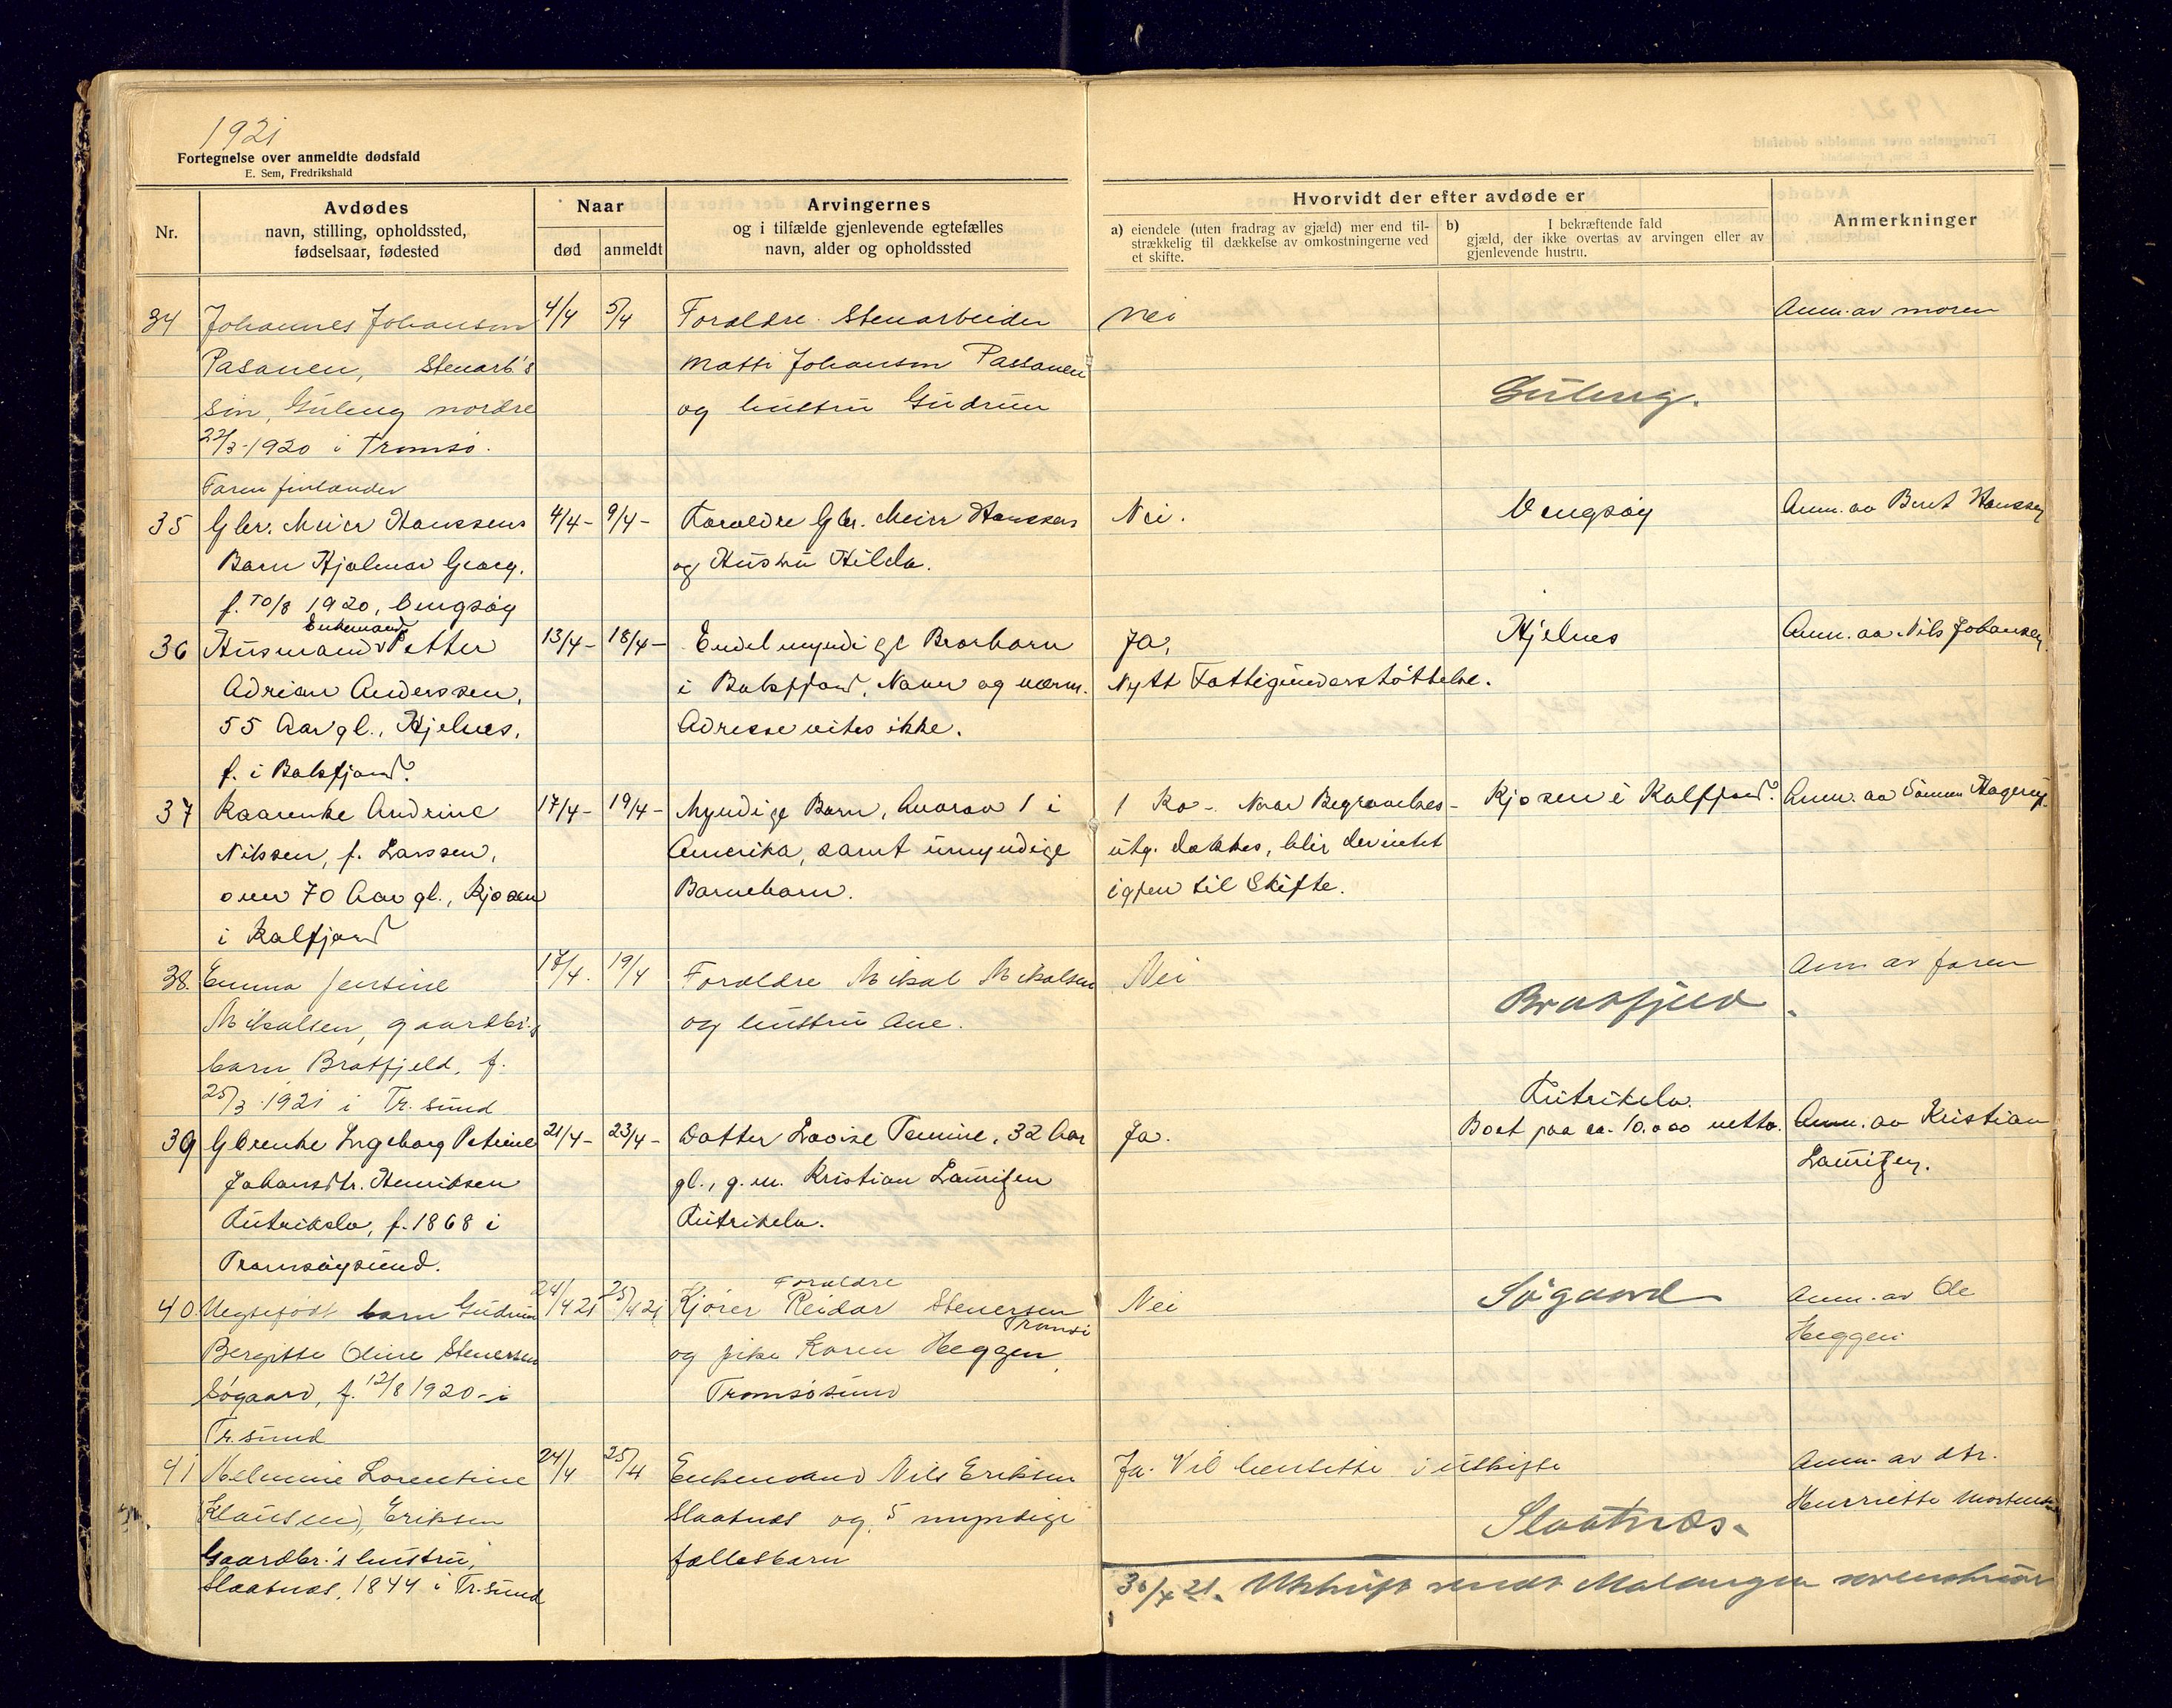 1921
Fortegnelse over anmeldte dødsfald
E. Sem, Fredrikshald
Nr.
Avdødes
navn, stilling, opholdssted,
fødselsaar, fødested
Naar
død
anmeldt
Arvingernes
og i tilfælde gjenlevende egtefælles
navn, alder og opholdssted
Hvorvidt der efter avdøde er
a) eiendele (uten fradrag av gjæld) mer end til-
strækkelig til dækkelse av omkostningerne ved
et skifte.
b) I bekræftende fald
gjæld, der ikke overtas av arvingen eller av
gjenlevende hustru.
Anmerkninger
34
Johannes Johansen
Pasanen, Stenarb.'s
søn, Guleng nordre
22/3-1920 i Tromsø.
Faren finlænder
4/4
5/4
Forældre Stenarbeider
Matti Johansen Passanen
og hustru Gudrun
Nei
Guleng.
Anm. av moren
35
Gbr. Meier Hanssens
Barn Hjalmar Georg.
f. 10/8 1920, Vengsøy
4/4-
9/4-
Forældre Gbr. Meier Hanssen
og Hustru Hilda.
Nei.
Vengsøy
Anm. av Beret Hanssen
36
Enkemand
Husmand Petter
Adrian Anderssen,
55 Aar gl., Hjelnes,
f. i Balsfjord.
13/4-
18/4-
Endel myndige Brorbarn
i Balsfjord, Navn og nærm.
Adresse vites ikke.
Ja,
Nytt Fattigunderstøttelse.
Hjelnes
Anm. av Nils Johansen
37
Kaarenke Andrine
Nilssen, f. Larssen,
over 70 Aar gl., Kjosen
i Kalfjord
17/4-
19/4-
Myndige Barn, hvorav 1 i
Amerika, samt umyndige
Barnebarn.
1 Ko-. Naar Begravelses-
utg. dækkes, blir der intet
igjen til Skifte.
Kjosen i Kalfjord.
Anm. av Hagerup.
38.
Emma Jentine
Mikalsen, gaardbr.s
barn Bratfjeld, f.
25/3 1921 i Tr.sund
17/4.
19/4
Forældre Mikal Mikalsen
og hustru Ane.
Nei
Bratfjeld
Anm av faren
39
Gbrenke Ingeborg Petrine
Johansdtr. Henriksen
Rutrikela, f. 1868 i
Tromsøysund.
21/4-
23/4-
Datter Lovise Tomine, 32 Aar
gl., g.m. Kristian Lauritzen
Rutrikela.
Ja.
Rutrikela.
Boet paa ca. 10.000 netto.
Anm. av Kristian
Lauritzen.
40
Uegtefødt barn Gudrun
Bergitte Oline Stenersen
Søgaard, f. 12/8 1920 - i
Tr.sund
24/4 21
25/4 21
Forældre
Kjører Reidar Stenersen
Tromsø
og pike Karen Heggen,
Tromsøsund
Nei
Søgaard
Anm. av Ole
Heggen
41
Helmine Lorentine
(Klausen), Eriksen
Gaardbr.'s hustru,
Slaatnes, 1844 i Tr.sund
24/4
25/4
Enkemand Nils Eriksen
Slaatnes og 5 myndige
fællesbarn
Ja. Vil hensitte i uskifte
Slaatnes.
Anm. av dtr.
Henriette Mortensen
30/4 21. Utskrift sendt Malangen sorenskriver